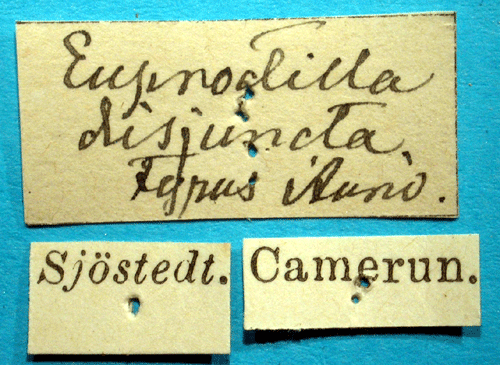 Eupnodilla
disjuncta
Typus Auriv.
Sjöstedt.
Camerun.